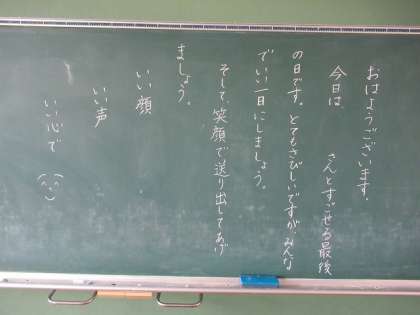 おはようございます。
今日は　　　さんとすごせる最後
の日です。とてもさびしいですが、みんな
でいい一日にしましょう。
そして、笑顔で送り出してあげ
ましょう。
いい顔
いい声
いい心で (^-^)